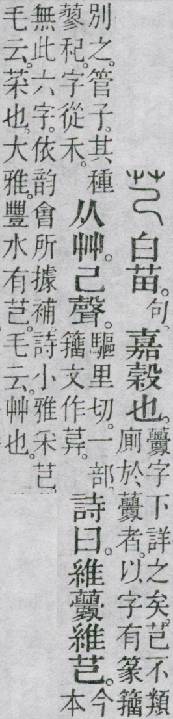 芑白苗。句嘉穀也。虋字下詳之矣。芑不類廁於虋者。以字有篆籒
別之。管子。其種蓼。字從禾。从艸。己聲。驅里切。一部籒文作。詩曰。維虋維芑。今本
無此六字。依韵會所據補。詩小雅釆芑。毛云。菜也。大雅。豐水有芑。毛云。艸也。